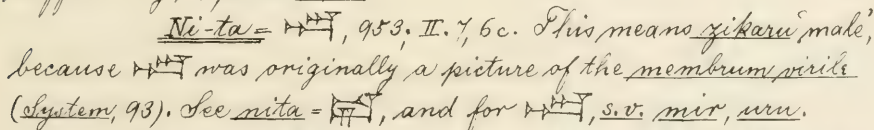 Ni-ta = 𒀴, 953; II. 7, 6c. This means zikaru 'male',
because 𒀴 was originally a picture of the membrum virile
(System, 93). See nita = 𒍑, and for 𒀴, s.v. mir, uru.